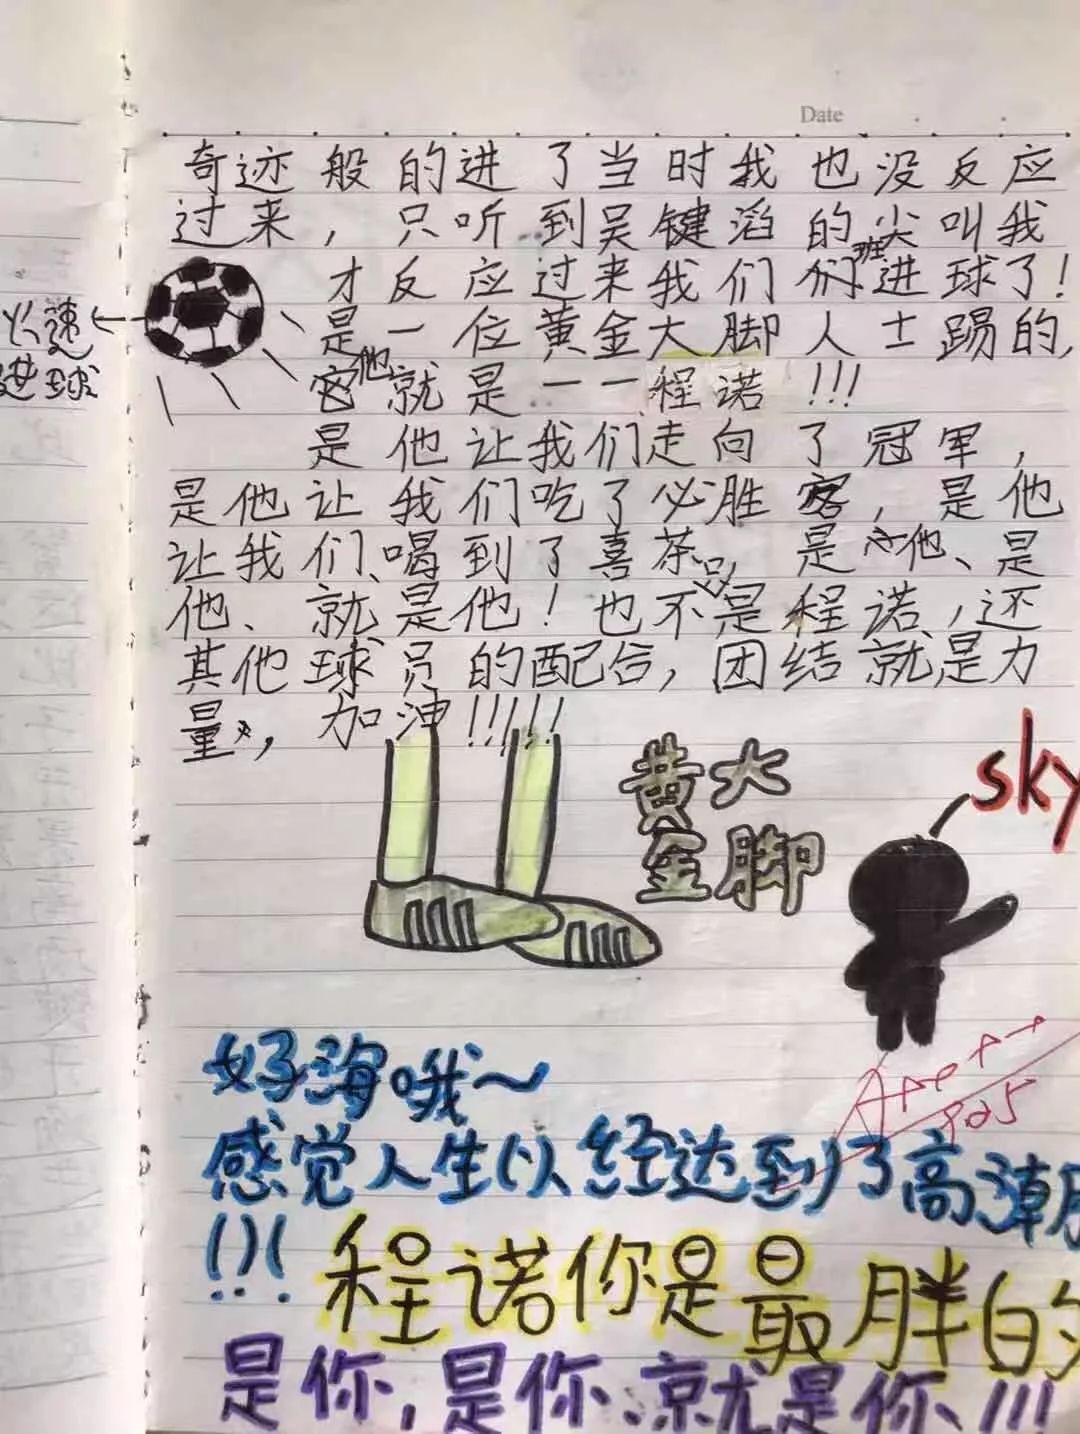 Date
奇迹般的进了当时我也没反应
过来，只听到吴键滔的尖叫我
才反应过来我们班进球了！
火速
进球
是一位黄金大脚人士踢的，
他就是一一程诺!!!
是他让我们走向了冠军，
是他让我们吃了必胜客，是他
让我们喝到了喜茶，是他、是
他、就是他！也不只是程诺，还
其他球员的配合，团结就是力
量，加油!!!!!!
黄大
金脚
sky
好海哦～
感觉人生以经达到了高潮
!!!
程诺你是最胖的
是你，是你、就是你、!!!